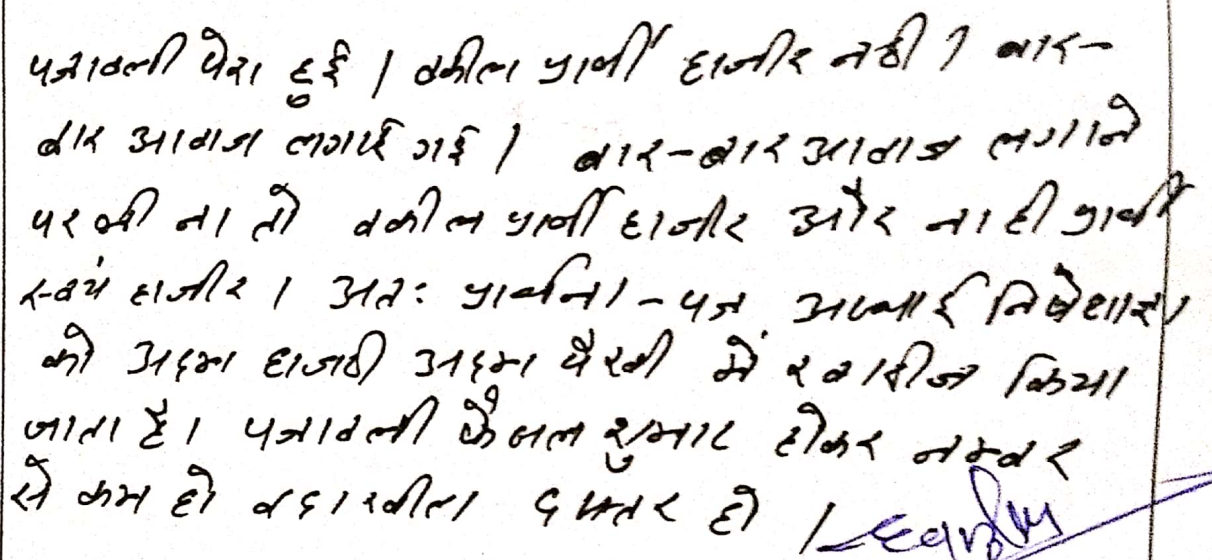 पत्रावली पेश हुई । वकील प्रार्थी हाजीर नही । बार-
बार आवाज लगाई गई । बार-बार आवाज लगाने
पर भी ना तो वकील प्रार्थी हाजीर और ना ही प्रार्थी
स्वयं हाजीर । अतः प्रार्थना-पत्र अस्थाई निषेधाज्ञा
को अदम हाजरी अदम पैरवी में खारीज किया
जाता है । पत्रावली फैसल शुमार होकर नम्बर
से कम हो व दाखील दफ्तर हो ।